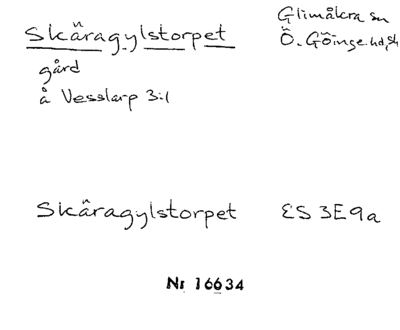 Skäragylstorpet
Glimåkra sn
Ö. Göinge hd, Sk
gård
å Vesslarp 3:1
Skäragylstorpet
ES 3E9a
Nr 16634